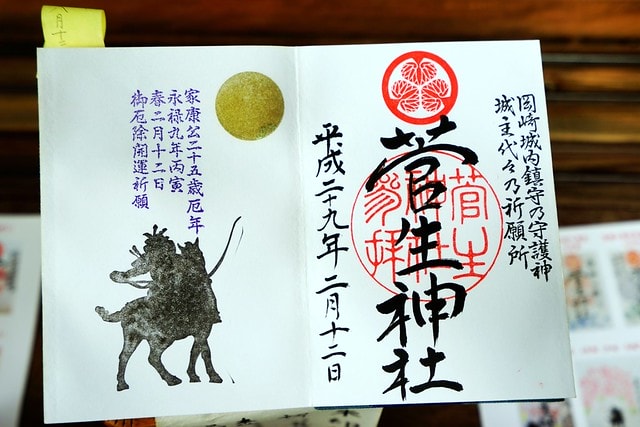 岡崎城内鎮守乃守護神
城主代々乃祈願所
菅生神社
菅生
神社
参拝
平成二十九年二月十二日
家康公二十五歳厄年
永禄九年丙寅
春二月十二日
御厄除開運祈願